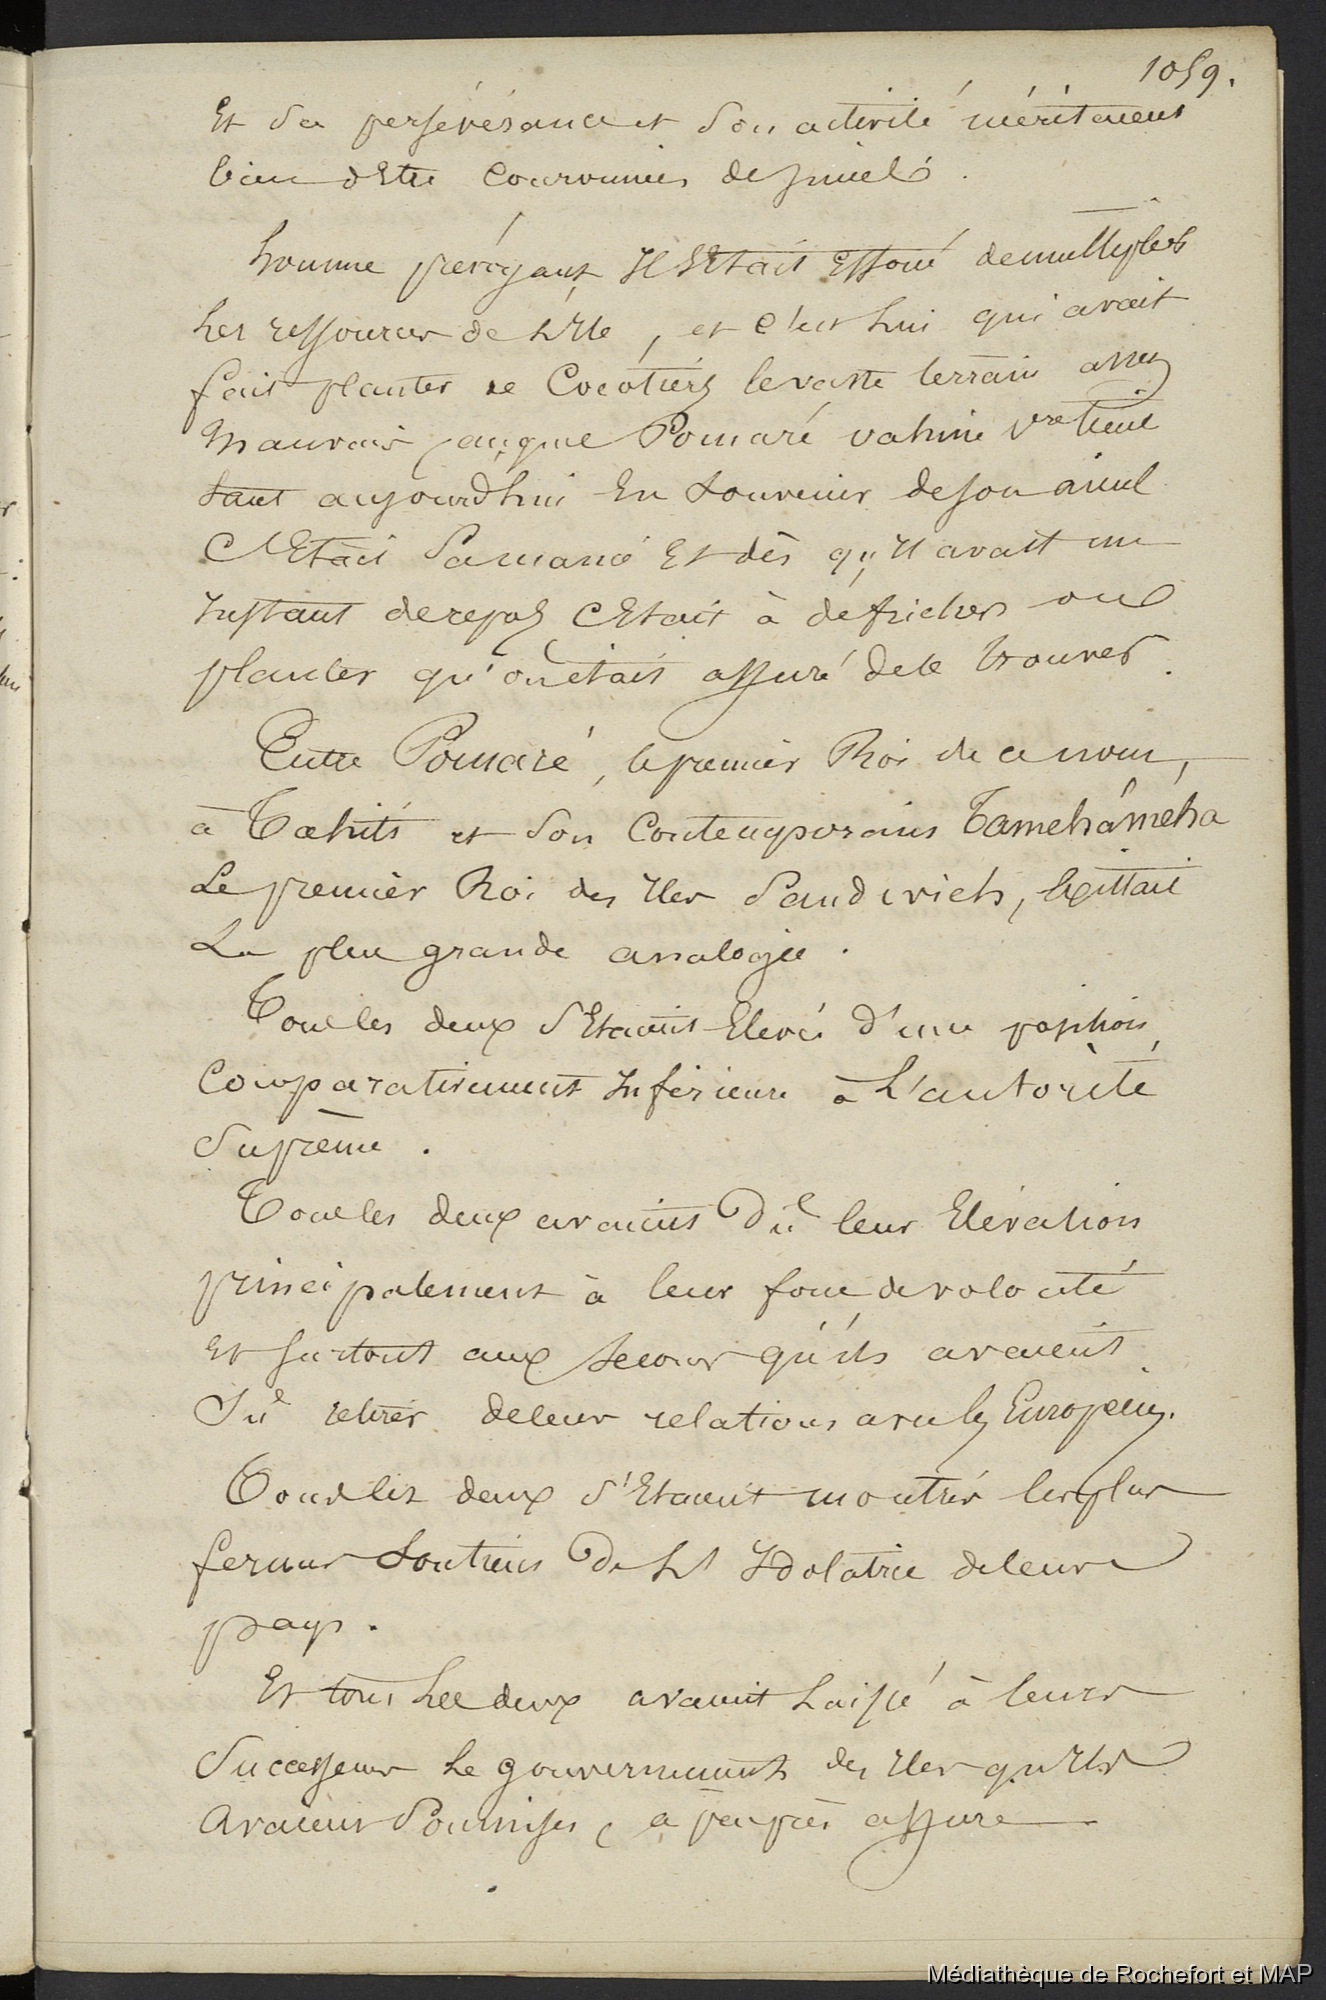 1059.
Et sa persévérance et son activité méritaient
bien d'Etre couronnées de succès.
homme prévoyant Il s'Etait efforcé de multiplier
Les ressources de L'Ile, et c'est Lui qui avait
fait planter de Cocotiers le vaste terrain assez
Mauvais, auquel Pomaré vahine Vre tient
tant aujourd'hui En souvenir de son aieul
C'Etait sa manie Et dès qu'Il avait un
Instant de repos C'Etait à défricher ou
planter qu'on était assuré de le trouver.
Entre Pomaré, le premier Roi de ce nom,
à Tahiti et son Contemporains Tamehaméha
Le premier Roi des Iles Sandwich, Existait
La plus grande analogie.
Tous les deux s'Etaient Elevés d'une position
Comparativement Inférieure à L'autorité
Suprême.
Tous les deux avaient Dû leur Elévation
principalement à leur force de volonté
Et surtout aux secours qu'ils avaient
Su retirer de leurs relations avec les Européens.
Tous les deux s'Etaient montrés les plus
fermes soutiens De L'Idolatrie de leur
pays.
Et tous Les deux avaient Laissé à leurs
Successeurs Le gouvernement des Iles qu'Ils
avaient Soumises, à peu près assuré
Médiathèque de Rochefort et MAP